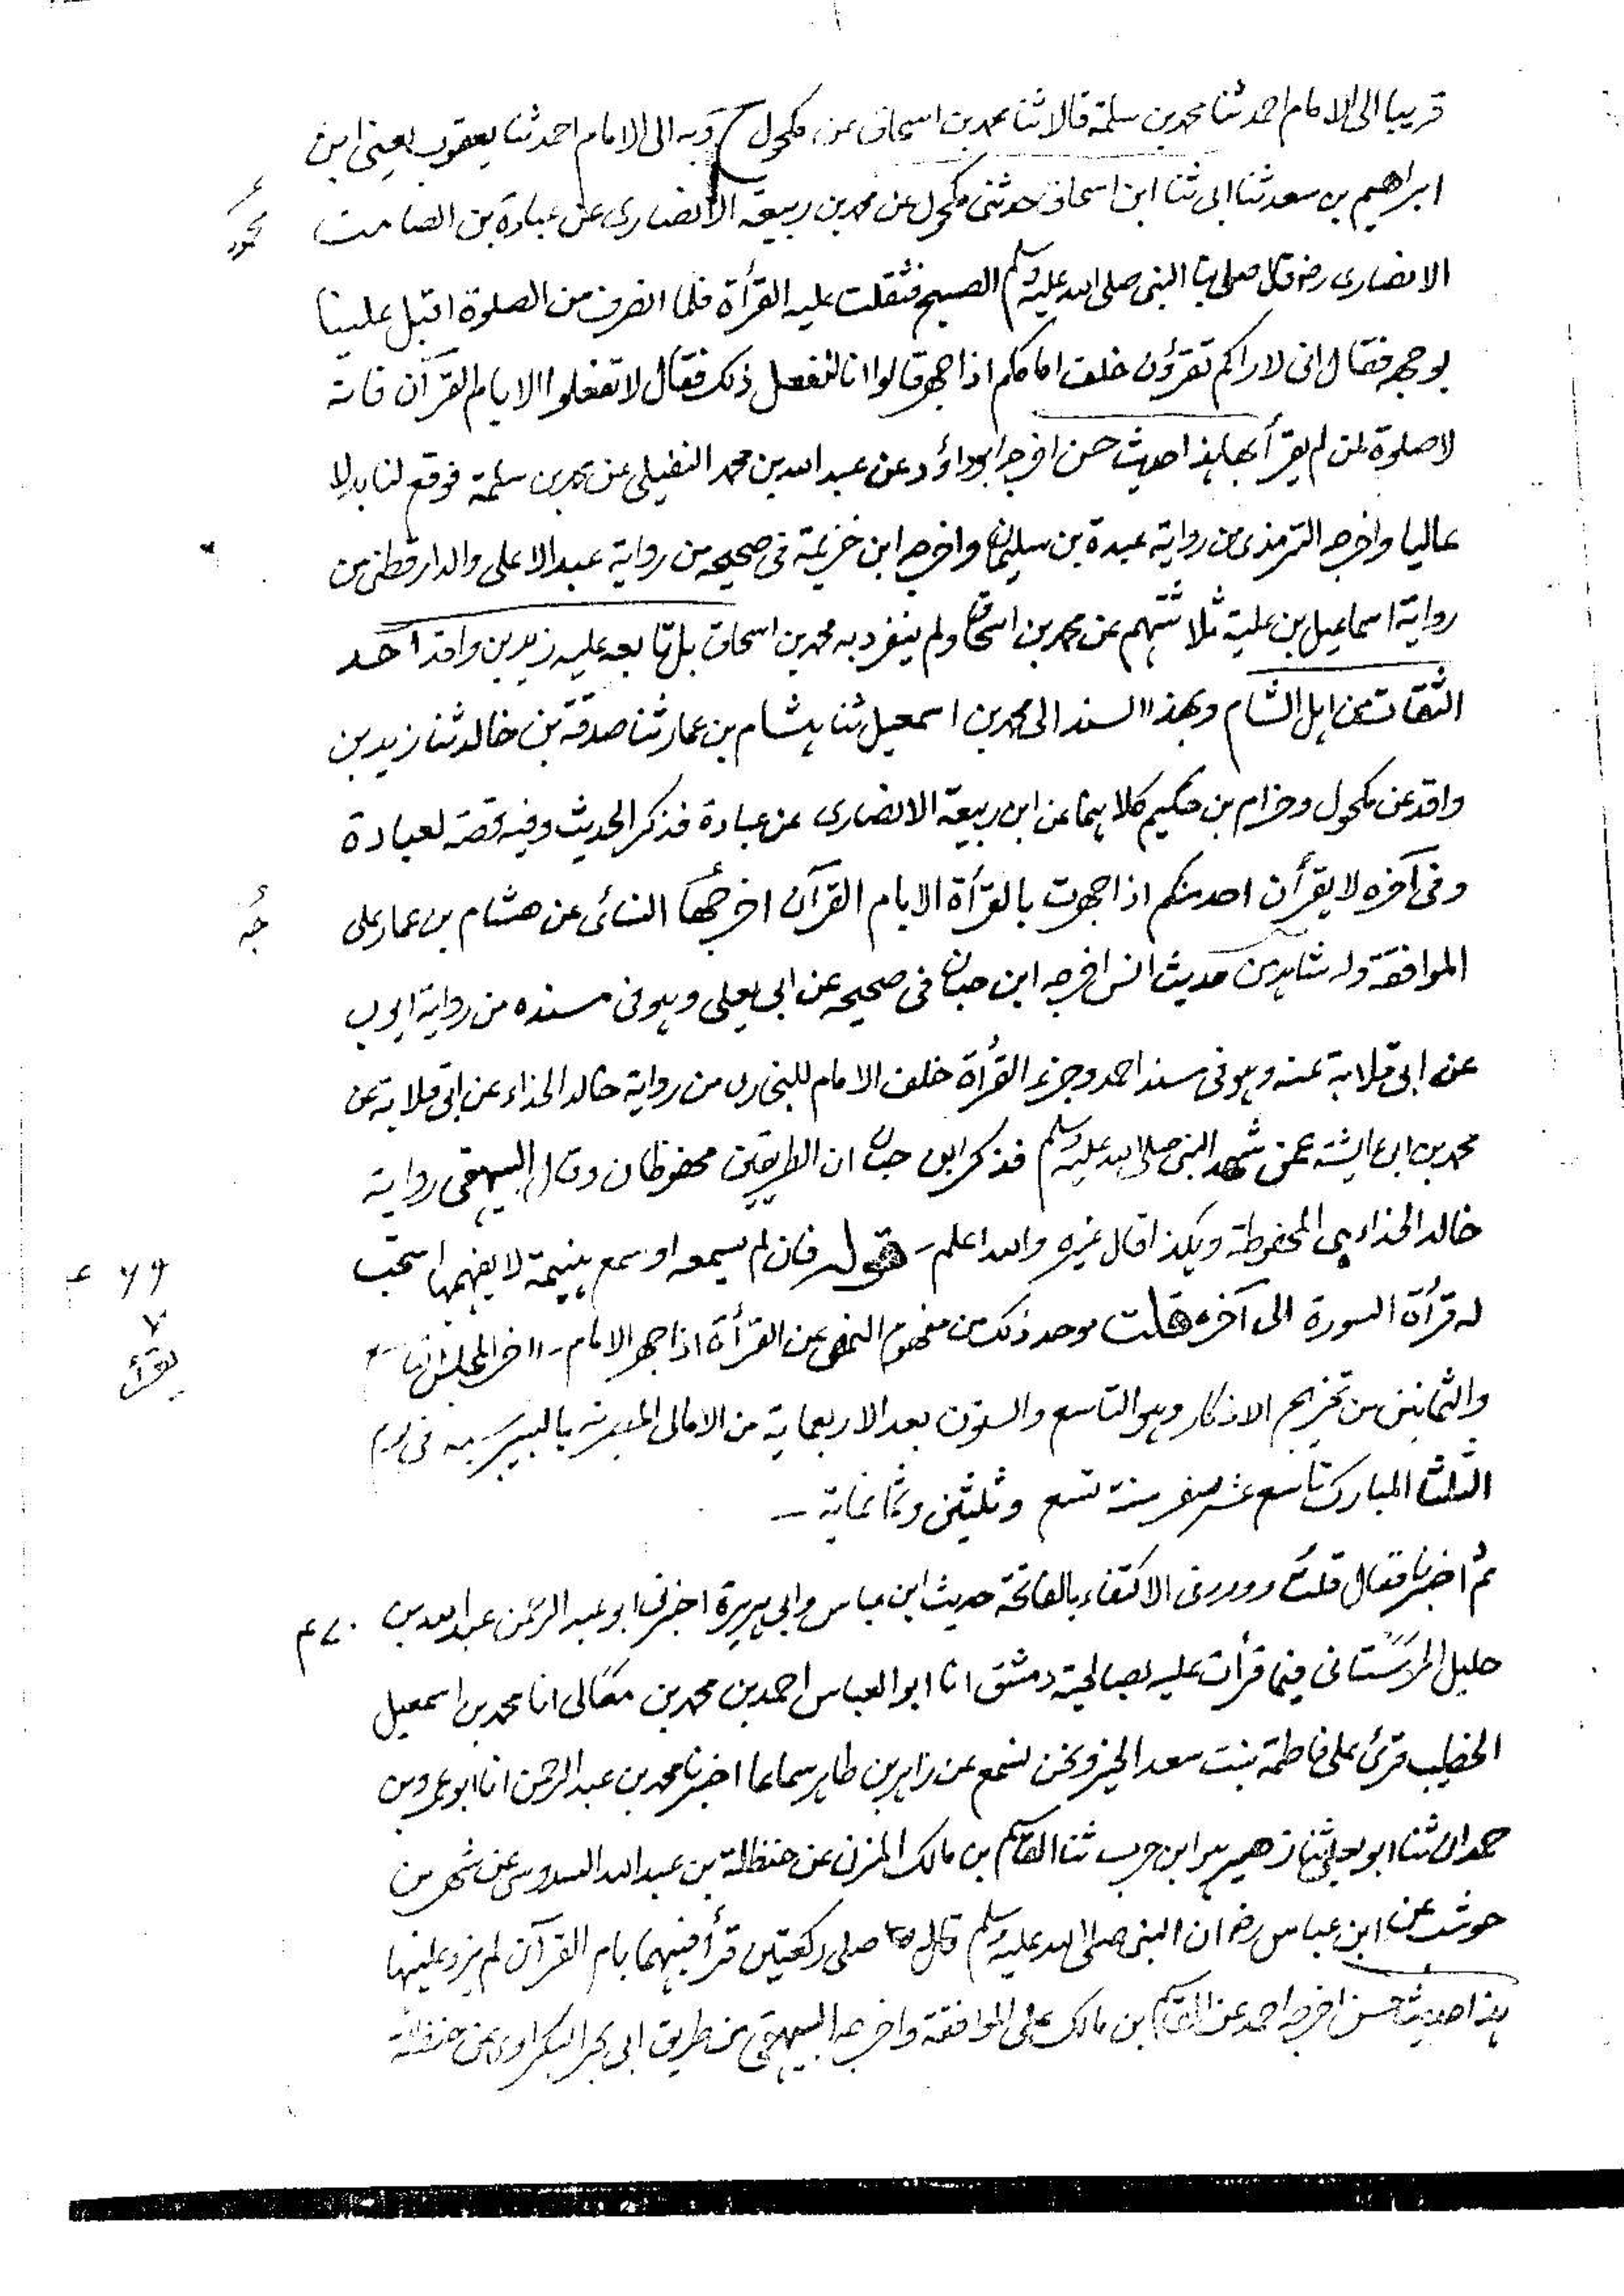 قريبا الى الامام احمد ثنا محمد بن سلمة قالا ثنا محمد بن اسحاق عن مكحول ح وبه الى الامام احمد ثنا يعقوب يعنى ابن
ابراهيم بن سعد ثنا ابى ثنا ابن اسحاق حدثنى مكحول عن محمد بن ربيعة الانصارى عن عبادة بن الصامت
محمود
الانصارى رضى قال صلى بنا النبى صلى الله عليه وسلم الصبح فثقلت عليه القرأة فلما انصرف من الصلوة اقبل علينا
بوجهه فقال انى لاراكم تقرؤن خلف امامكم اذا جهر قالوا انا لنفعل ذلك فقال لا تفعلوا الا بام القرآن فانه
لا صلوة لمن لم يقرأ بها هذا حديث حسن اخرجه ابوداؤد عن عبد الله بن محمد النفيلى عن محمد بن سلمة فوقع لنا بدلا
عاليا واخرجه الترمذى من رواية عبدة بن سليمان واخرجه ابن خزيمة فى صحيحه من رواية عبد الاعلى والدارقطنى من
رواية اسماعيل بن علية ثلاثتهم عن محمد بن اسحاق ولم ينفرد به محمد بن اسحاق بل تابعه عليه زيد بن واقد احد
الثقات من اهل الشام وبهذا السند الى محمد بن اسمعيل ثنا هشام بن عمار ثنا صدقة بن خالد ثنا زيد بن
واقد عن مكحول وحزام بن حكيم كلاهما عن ابن ربيعة الانصارى عن عبادة فذكر الحديث وفيه قصة لعبادة
وفى آخره لا يقرأن احد منكم اذا جهرت بالقرأة الا بام القرآن اخرجها النسائى عن هشام بن عمار على
جه
الموافقة وله شاهد من حديث انس اخرجه ابن حبان فى صحيحه عن ابى يعلى وهو فى مسنده من رواية ايوب
عن ابى قلابة عنه وهو فى مسند احمد وجزء القرأة خلف الامام للبخارى من رواية خالد الحذاء عن ابى قلابة عن
محمد بن ابى عايشة عمن شهد النبى صلى الله عليه وسلم فذكر ابن حبان ان الطريقين محفوظان وقال البيهقى رواية
خالد الحذاء هى المحفوظة وهكذا قال غيره والله اعلم ـ قوله فان لم يسمعه او سمع هينمة لا يفهمها استحب
له قرأة السورة الى آخره قلت يوخذ ذلك من مفهوم النهى عن القرأة اذا جهر الامام ـ آخر المجلس التاسع
يقرأ
والثمانين من تخريج الاذكار وهو التاسع والستون بعد الاربعماية من الامالى المصرية بالبيبرسية فى يوم
الثلثا المبارك تاسع عشر صفر سنة تسع وثلثين وثمانماية ـ
ثم اخبرنا فقال قلت وورد فى الاكتفاء بالفاتحة حديث ابن عباس وابى هريرة اخبرنى ابو عبد الرحمن عبد الله بن
٤٧٠
خليل الحرستانى فيما قرأت عليه بصالحية دمشق انا ابو العباس احمد بن محمد بن معالى انا محمد بن اسمعيل
الخطيب قرئ على فاطمة بنت سعد الخير ونحن نسمع عن زاهر بن طاهر سماعا اخبرنا محمد بن عبد الرحمن انا ابو عمرو بن
حمدان ثنا ابو يعلى ثنا زهير هو ابن حرب ثنا القاسم بن مالك المزنى عن حنظلة بن عبد الله السدوسى عن شهر بن
حوشب عن ابن عباس رضى ان النبى صلى الله عليه وسلم قال صلى ركعتين قرأ فيهما بام القرآن لم يزد عليها
هذا حديث حسن اخرجه احمد عن القاسم بن مالك على الموافقة واخرجه البيهقى من طريق ابى بحر البكراوى عن حنظلة